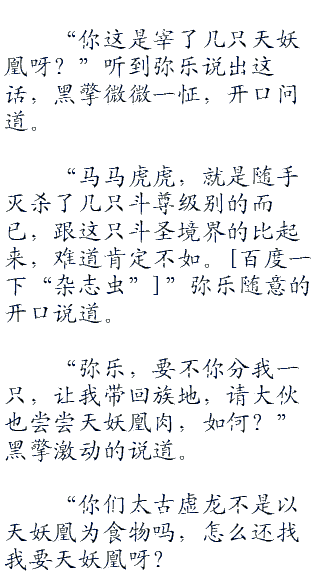 “你这是宰了几只天妖
凰呀？”听到弥乐说出这
话，黑擎微微一怔，开口问
道。
“马马虎虎，就是随手
灭杀了几只斗尊级别的而
已，跟这只斗圣境界的比起
来，难道肯定不如。[百度一
下“杂志虫”]”弥乐随意的
开口说道。
“弥乐，要不你分我一
只，让我带回族地，请大伙
也尝尝天妖凰肉，如何？”
黑擎激动的说道。
“你们太古虚龙不是以
天妖凰为食物吗，怎么还找
我要天妖凰呀？